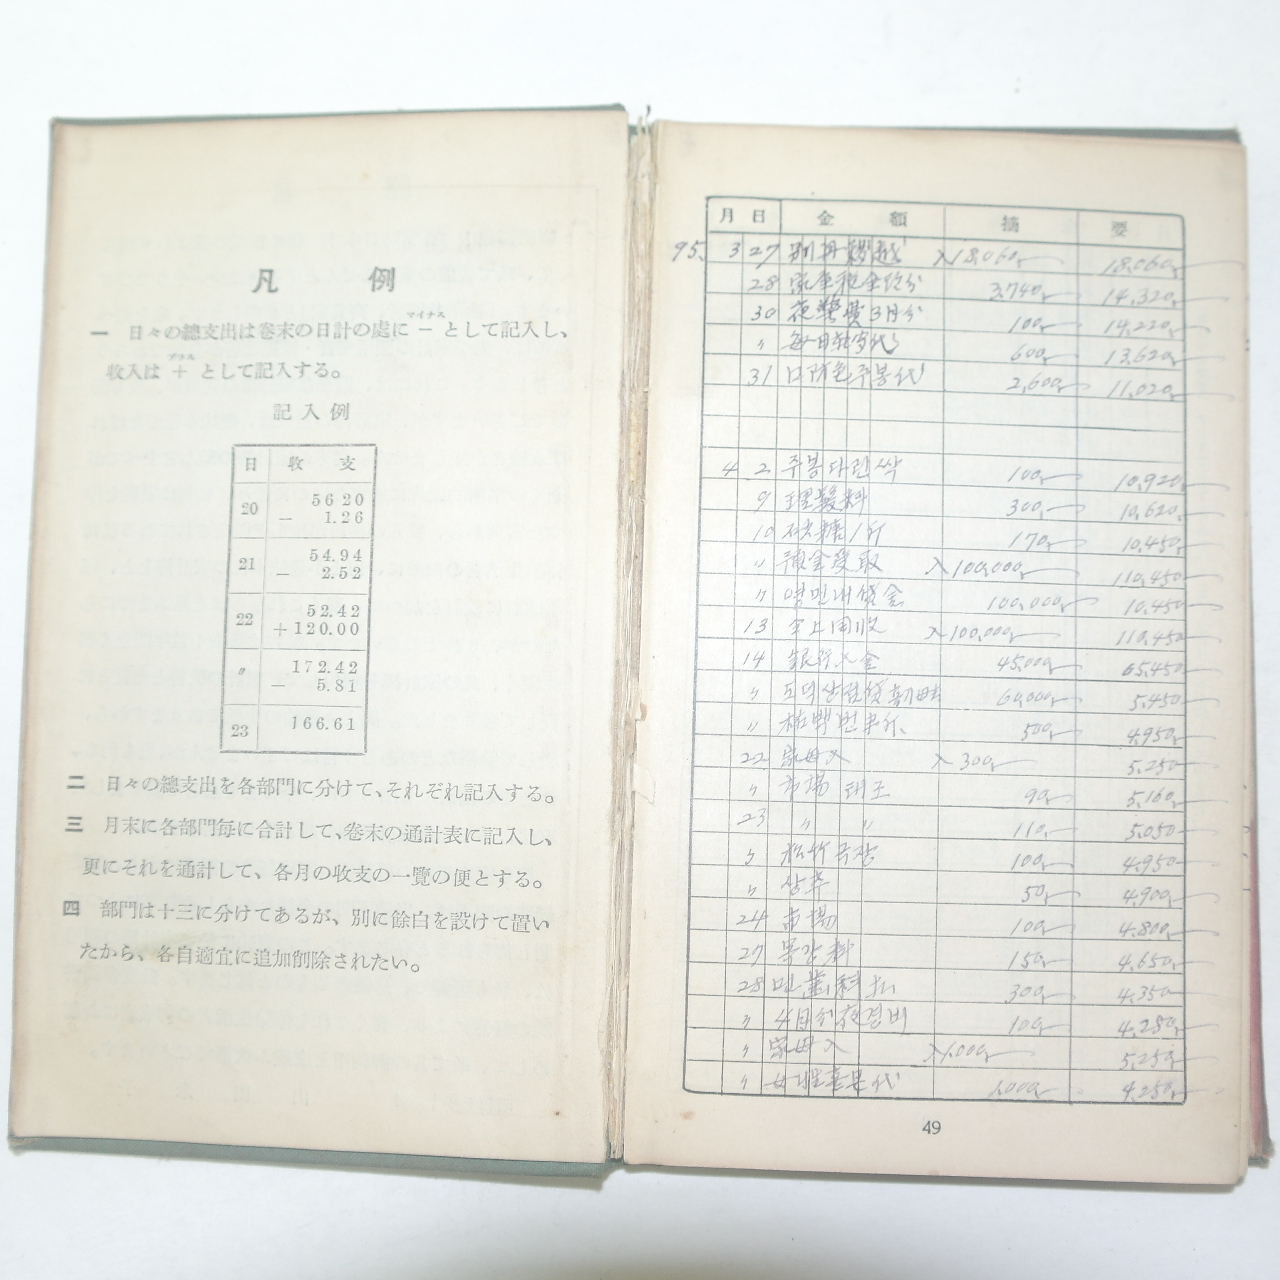 凡例
一 日々の總支出は卷末の日計の處に － として記入し、
マイナス
收入は ＋ として記入する。
プラス
記入例
日 收支
20 56 20
－ 1.26
21 54.94
－ 2.52
22 52.42
＋120.00
〃 172.42
－ 5.81
23 166.61
二 日々の總支出を各部門に分けて、それぞれ記入する。
三 月末に各部門每に合計して、卷末の通計表に記入し、
更にそれを通計して、各月の收支の一覽の便とする。
四 部門は十三に分けてあるが、別に餘白を設けて置い
たから、各自適宜に追加削除されたい。
月 日 金額 摘要
95. 3 27 入18,060 18,060
28 3,740 14,320
30 3月分 100 14,220
〃 每日 代 600 13,620
31 주봉代 2,600 11,020
4 2 주봉다린싹 100 10,920
9 理髮料 300 10,620
10 砂糖1斤 170 10,450
〃 預金受取 入100,000 110,450
〃 100,000 10,450
13 仝上回收 入100,000 110,450
14 銀行入金 45,000 65,450
〃 60,000 5,450
〃 500 4,950
22 家母入 入300 5,250
〃 市場 90 5,160
23 〃 〃 110 5,050
〃 松竹극장 100 4,950
〃 상추 50 4,900
24 市場 100 4,800
27 목간料 150 4,650
28 齒科 300 4,350
〃 4月分夜경비 100 4,250
〃 家母入 入1,000 5,250
〃 代 1,000 4,250
49